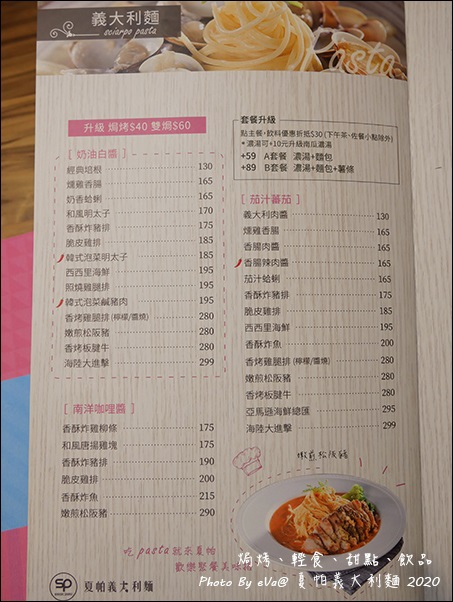 義大利麵
sciarpo pasta
Pasta
升級 焗烤$40 雙焗$60
[ 奶油白醬 ]
經典培根 130
燻雞香腸 165
奶香蛤蜊 165
和風明太子 170
香酥炸豬排 175
脆皮雞排 185
韓式泡菜明太子 185
西西里海鮮 195
照燒雞腿排 195
韓式泡菜鹹豬肉 195
香烤雞腿排 (檸檬/醬燒) 280
嫩煎松阪豬 280
香烤板腱牛 280
海陸大進擊 299
[ 南洋咖哩醬 ]
香酥炸雞柳條 175
和風唐揚雞塊 175
香酥炸豬排 190
脆皮雞排 200
香酥炸魚 215
嫩煎松阪豬 290
吃pasta就來夏帕
歡樂聚餐美味
SP
夏帕義大利麵
套餐升級
點主餐,飲料優惠折抵$30 (下午茶、佐餐小點除外)
*濃湯可+10元升級南瓜濃湯
+59 A套餐 濃湯+麵包
+89 B套餐 濃湯+麵包+薯條
[ 茄汁蕃茄 ]
義大利肉醬 130
燻雞香腸 165
香腸肉醬 165
香腸辣肉醬 165
茄汁蛤蜊 165
香酥炸豬排 175
脆皮雞排 185
西西里海鮮 195
香酥炸魚 200
香烤雞腿排 (檸檬/醬燒) 280
嫩煎松阪豬 280
香烤板腱牛 280
亞馬遜海鮮總匯 295
海陸大進擊 299
嫩煎松阪豬
焗烤、輕食、甜點、飲品
Photo By eVa@ 夏帕義大利麵 2020